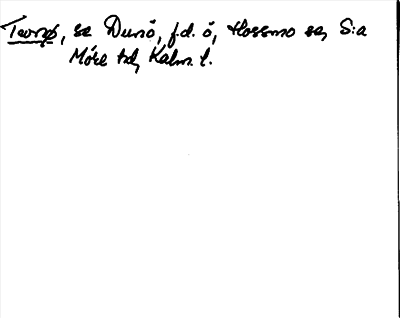 Tavnø, se Dunö, f.d. ö, Hossmo sn, S:a
Möre hd, Kalm. l.